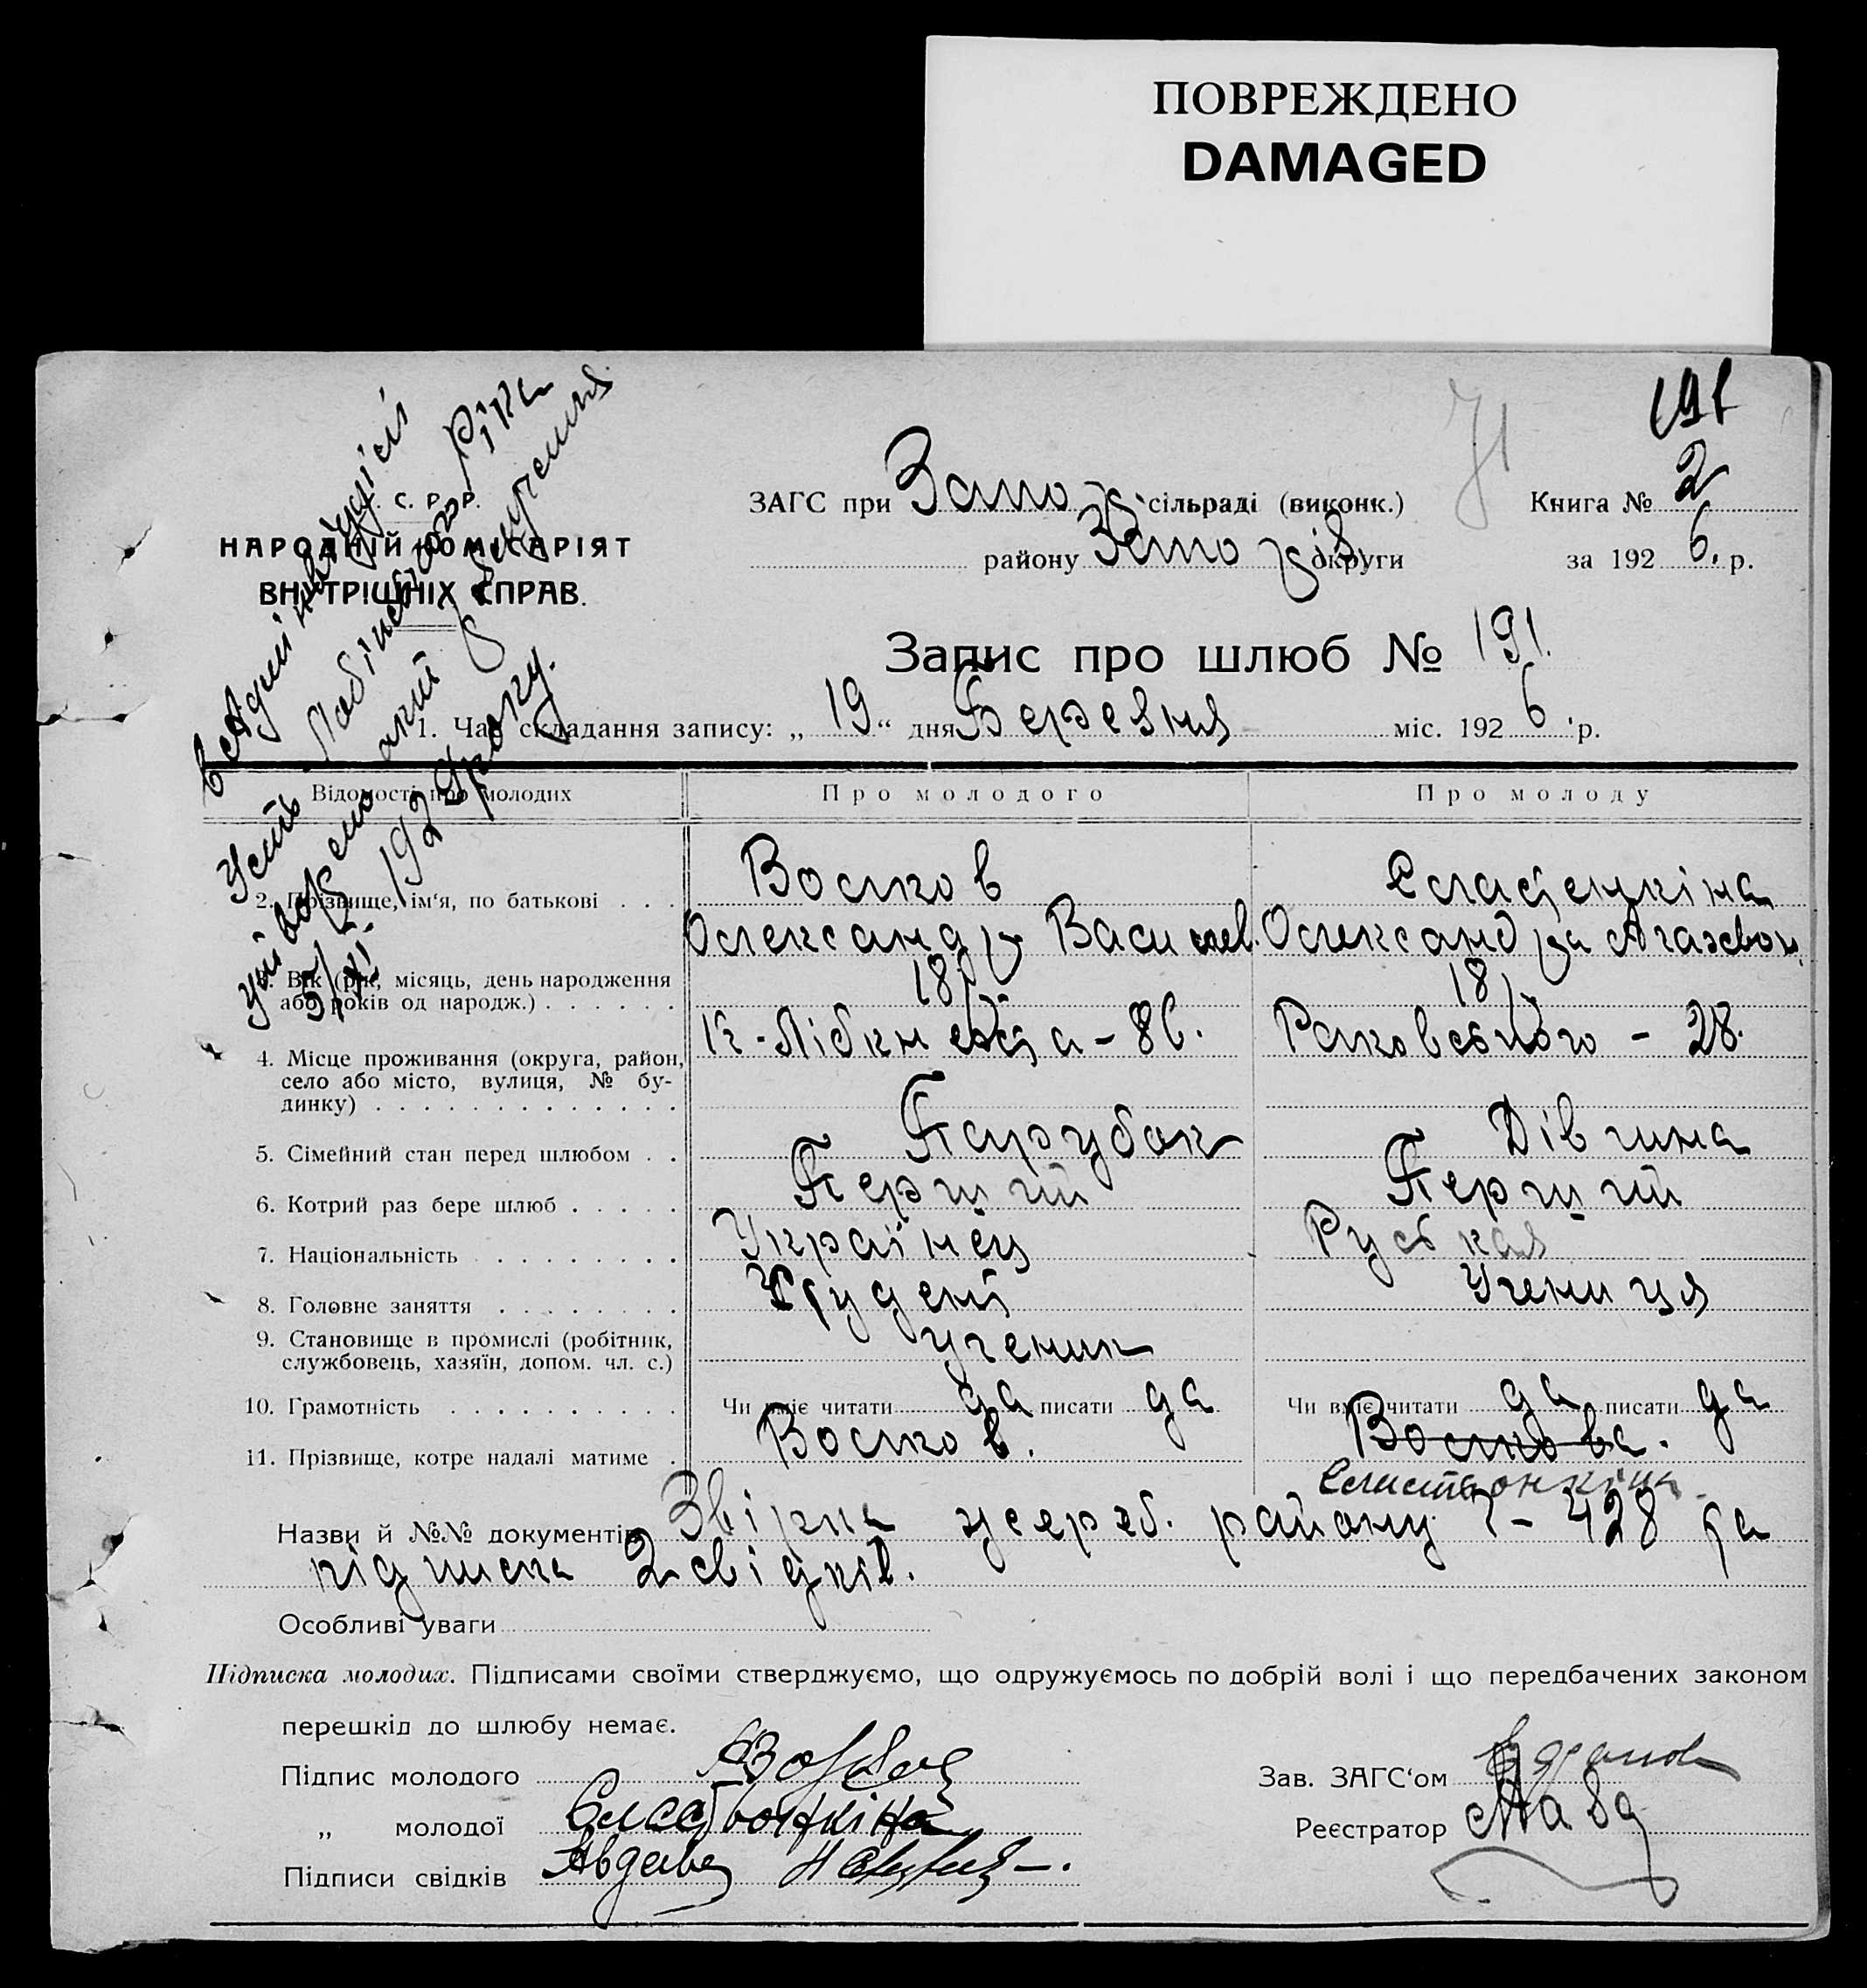 ПОВРЕЖДЕНО
DAMAGED
191
71
С. Р. Р.
НАРОДНІЙ КОМІСАРІЯТ
ВНУТРІШНІХ СПРАВ.
ЗАГС при Запор. сільраді (виконк.)
Книга № 2
району Запоріз. округи
за 192 6. р.
Запис про шлюб № 191.
1. Час складання запису: „ 19 “ дня Березня міс. 192 6 р.
1929 року.
Відомості про молодих
Про молодого
Про молоду
2. Прізвище, ім‘я, по батькові
Волков
Олександр Васильев.
Олександра
3. Вік (рік, місяць, день народження
або років од народж.)
18 р.
18 р.
4. Місце проживання (округа, район,
село або місто, вулиця, № бу-
динку)
К-Лібкнехта - 86.
Раковського - 28.
5. Сімейний стан перед шлюбом
Парубок
Дівчина
6. Котрий раз бере шлюб
Перший
Перший
7. Національність
Українец
Руськая
8. Головне заняття
Студент
Учениця
9. Становище в промислі (робітник,
службовець, хазяїн, допом. чл. с.)
ученик
10. Грамотність
Чи вміє читати да писати да
Чи вміє читати да писати да
11. Прізвище, котре надалі матиме
Волков.
Волкова.
Назви й №№ документів Звірка району 7-428 та
підписка 2 свідків.
Особливі уваги
Підписка молодих. Підписами своїми стверджуємо, що одружуємось по добрій волі і що передбачених законом
перешкід до шлюбу немає.
Підпис молодого
Зав. ЗАГС‘ом
„ молодої
Реєстратор
Підписи свідків